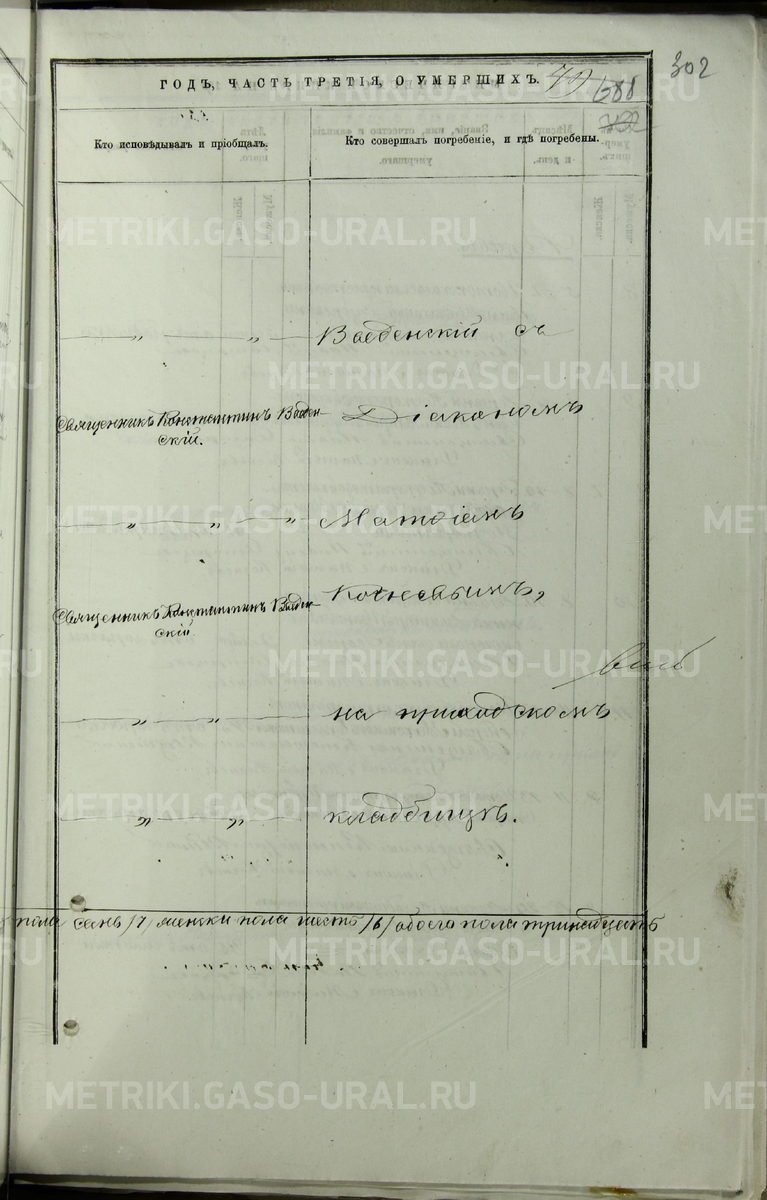 302
ГОДЪ, ЧАСТЬ ТРЕТІЯ, О УМЕРШИХЪ.
688
Кто исповѣдывалъ и пріобщалъ.
Кто совершалъ погребеніе, и гдѣ погребены.
— „ — „ — Введенскій съ
Священникъ Константинъ Введен-
скій.
Діакономъ
— „ — „ — „
Священникъ Константинъ Введен-
скій.
— „ — „ — на приходскомъ
— „ — „ — кладбищѣ.
пола семь /7/ женска пола шесть /6/ обоего пола тринадцать
METRIKI.GASO-URAL.RU